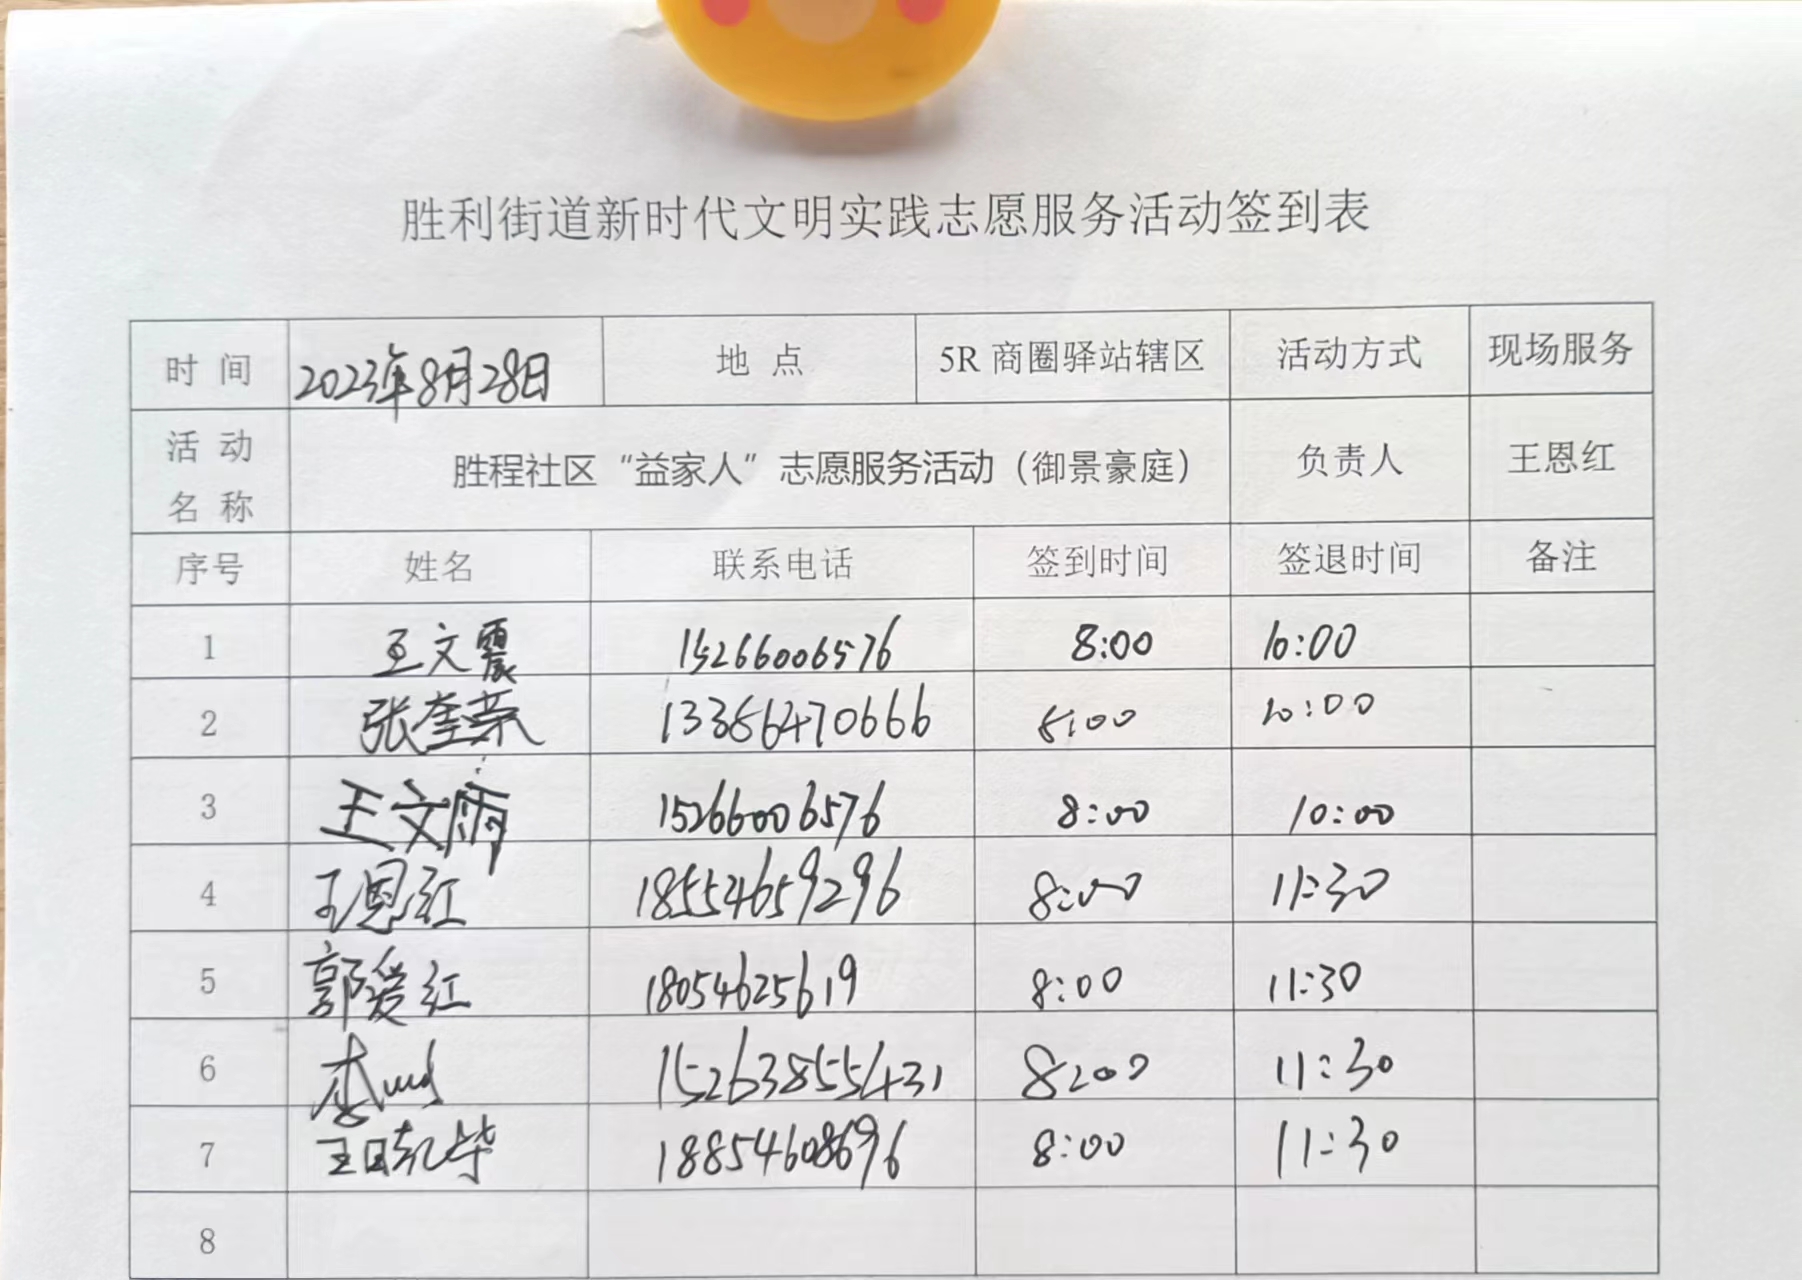 胜利街道新时代文明实践志愿服务活动签到表
时 间 2023年8月28日 地 点 5R 商圈驿站辖区 活动方式 现场服务
活 动 名 称 胜程社区“益家人”志愿服务活动（御景豪庭） 负责人 王恩红
序号 姓名 联系电话 签到时间 签退时间 备注
1 王文震 15266006576 8:00 10:00
2 张奎荣 13356470666 8:00 10:00
3 王文雨 15266006576 8:00 10:00
4 王恩红 18554659296 8:00 11:30
5 郭爱红 18054625619 8:00 11:30
6 李 15263855431 8:00 11:30
7 王 18854608696 8:00 11:30
8